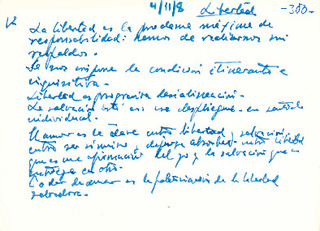 4/11/8 Libertad -380-
La libertad es la proclama máxima de
responsabilidad: hemos de realizarnos sin
respaldos.
Se nos impone la condición itinerante e
inquisitiva.
Libertad es progresiva desalienación.
La salvación está en ese despliegue - en sentido
individual.
El amor es la clave entre libertad y salvación,
entre ser sí mismo y dejarse absorber - entre libertad
que es una afirmación del yo y la salvación que es
entrega en otro.
Poder de amar es la potenciación de la libertad
salvadora.